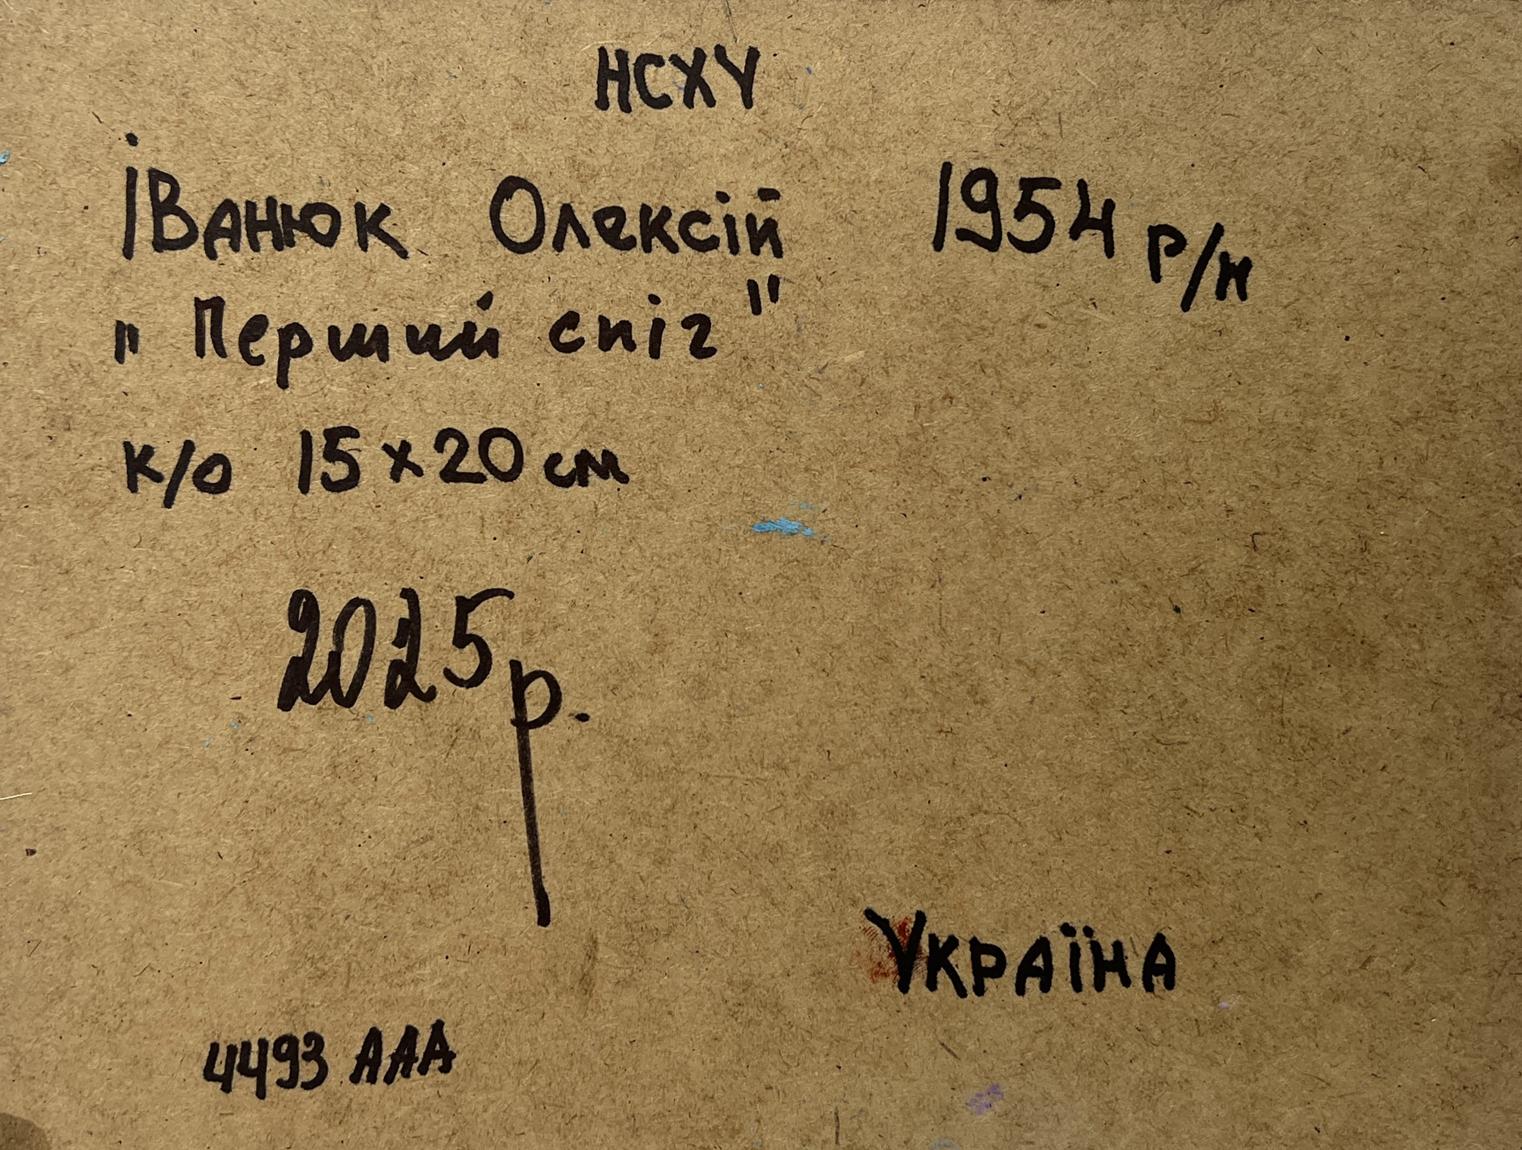 НСХУ
Іванюк Олексій 1954 р/н
"Перший сніг"
к/о 15х20 см
2025 р.
Україна
4493 ААА